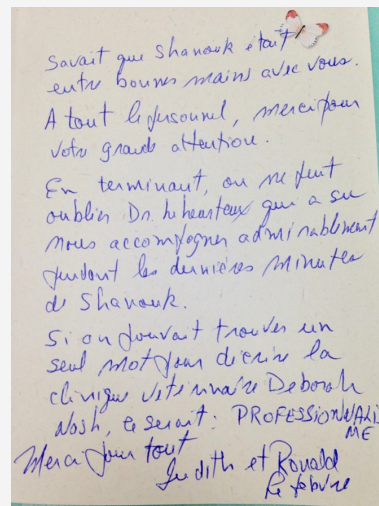 savait que Shanouk était
entre bonnes mains avec vous.
A tout le personnel, merci pour
votre grande attention.
En terminant, on ne peut
oublier Dr. qui a su
nous accompagner admirablement
pendant les dernières minutes
de Shanouk.
Si on pouvait trouver un
seul mot pour décrire la
clinique vétérinaire Deborah
Nash, ce serait: PROFESSIONNALIS
ME
Merci pour tout
Judith et Ronald
Lefebvre